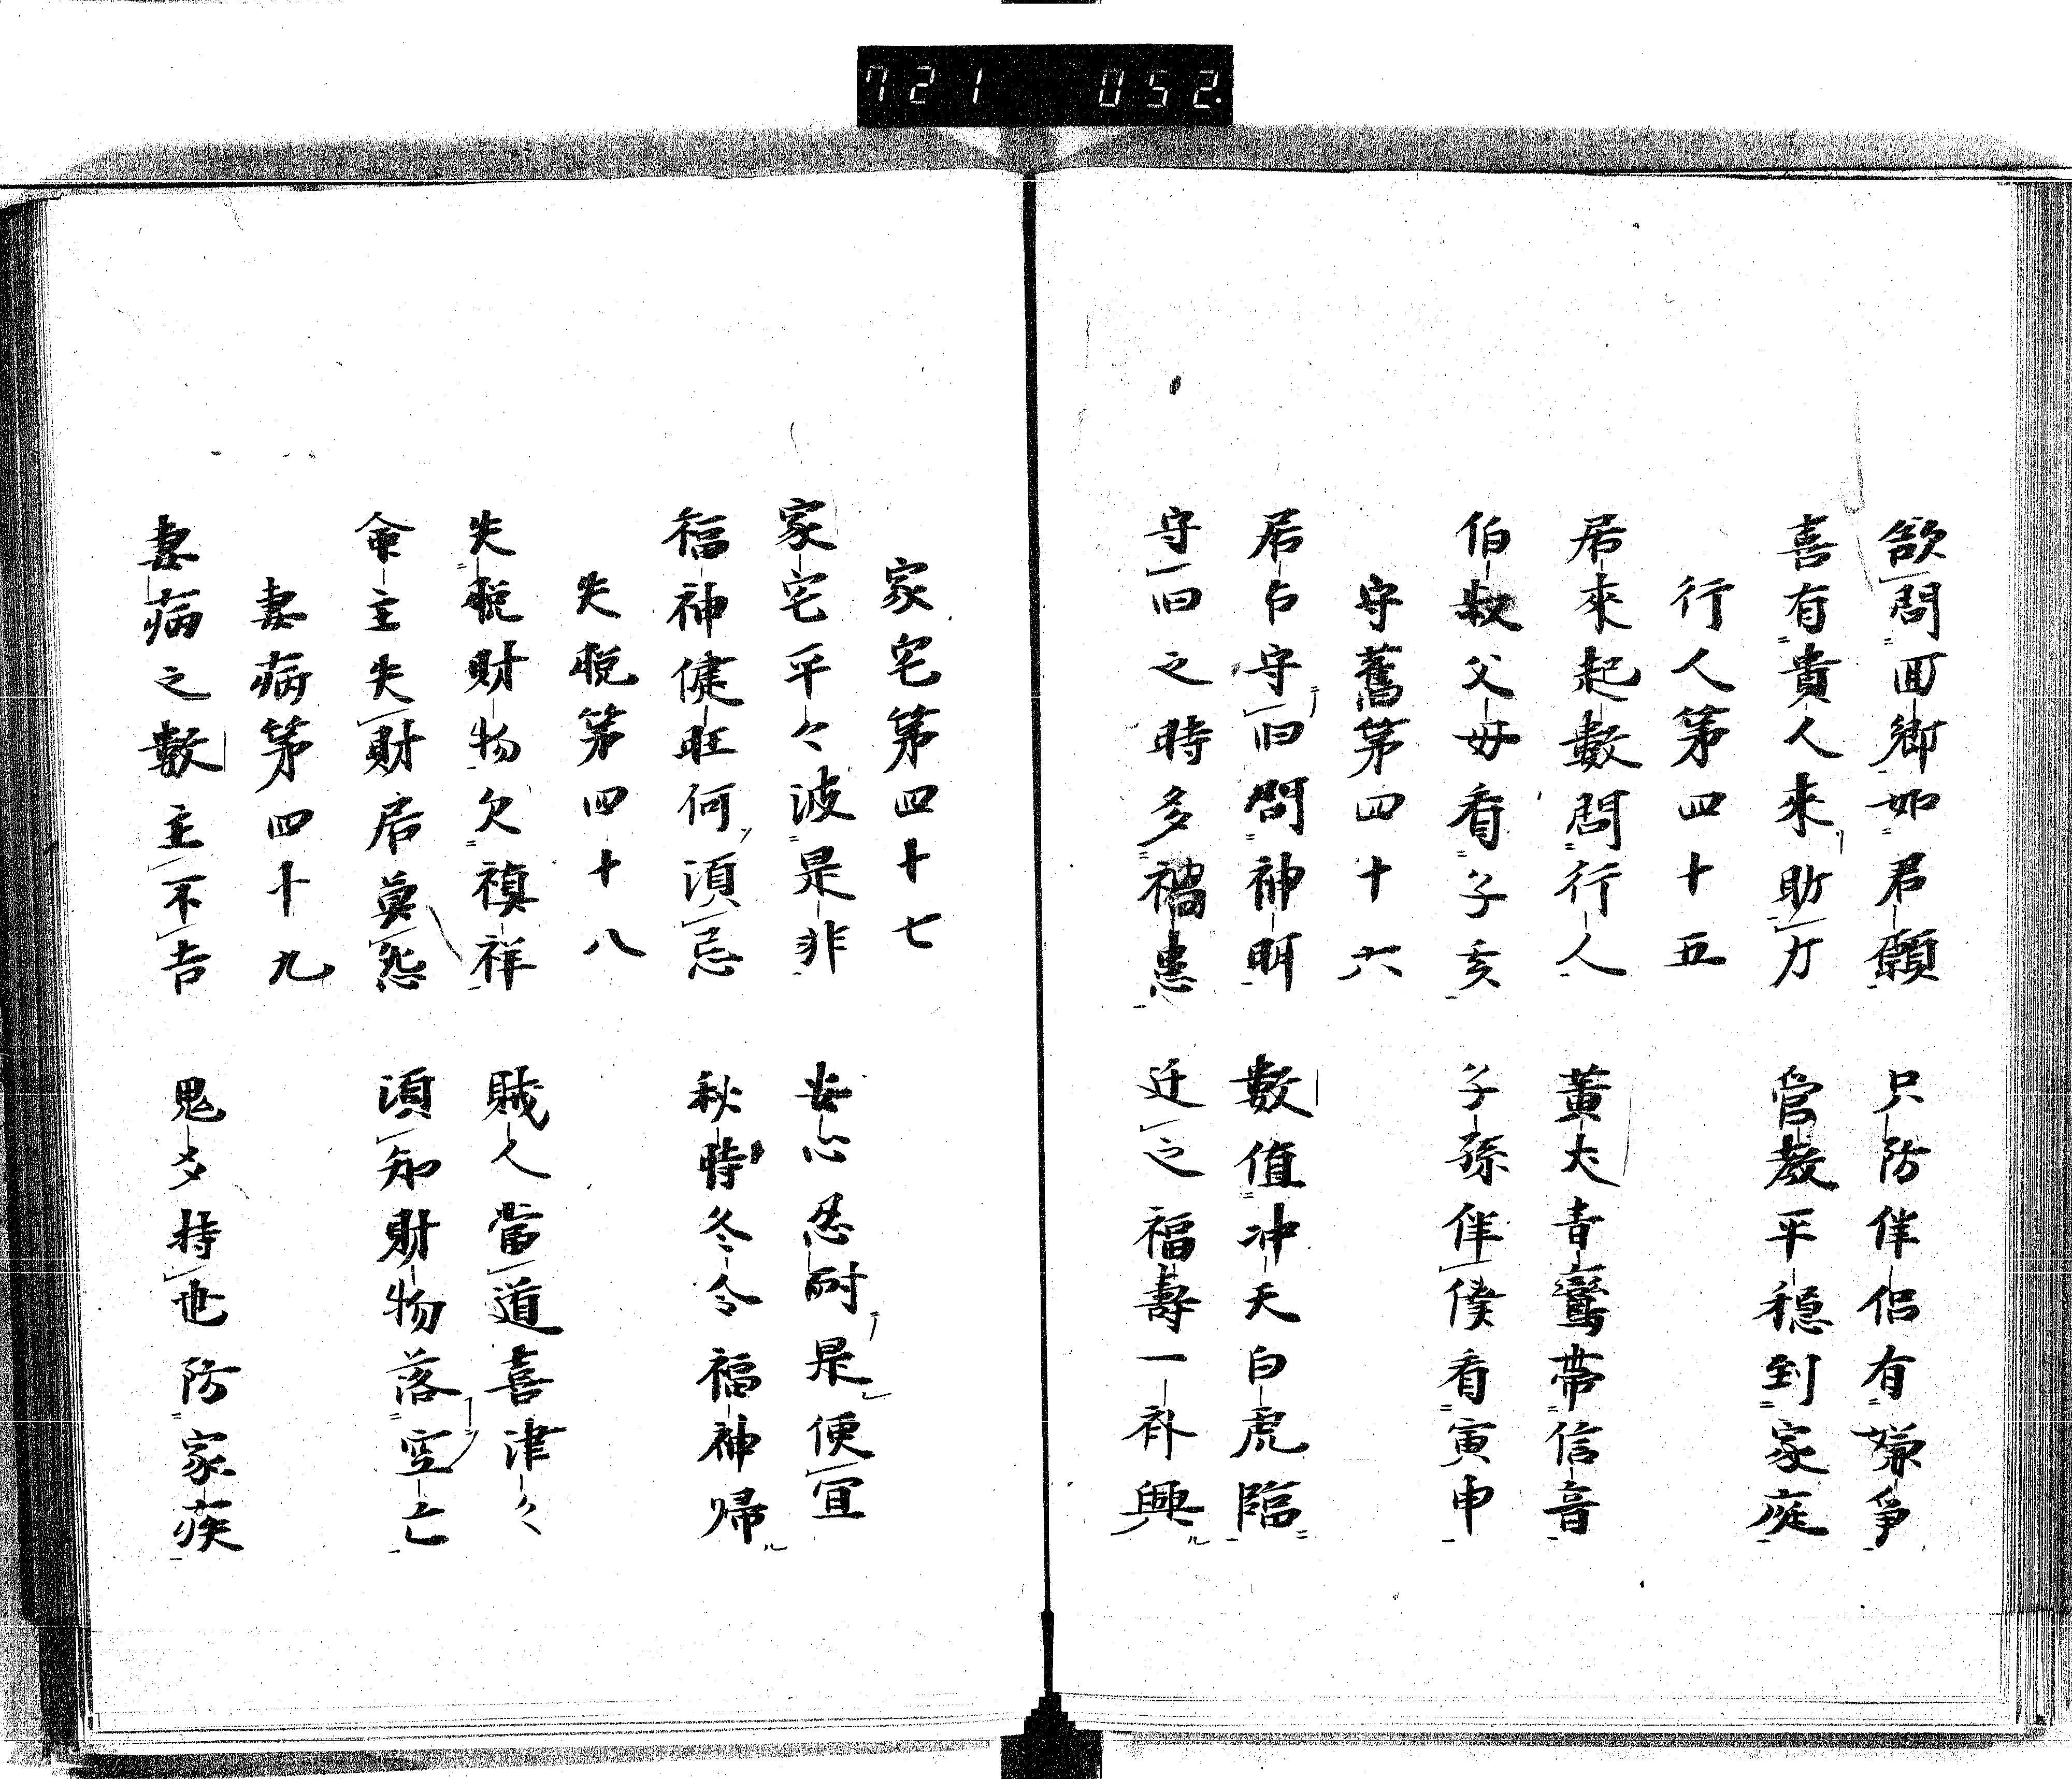 721 052.
欲問囬鄉如君願 只防伴侶有嫌爭
喜有貴人來助力 官教平穏到家庭
行人第四十五
居來起數問行人 黄犬青鸞帯信音
伯叔父母看子亥 子孫伴僕看寅申
守舊第四十六
居占守旧問神明 數值冲天白虎臨
守旧之時多禍患 迁之福壽一齐興
家宅第四十七
家宅平々波是非 安心忍耐是便宜
福神健旺何湏忌 秋時冬令福神帰
失脱第四十八
失脱財物欠禎祥 賊人當道喜津々
命主失財居莫怨 湏知財物落空亡
妻病第四十九
妻病之數主不吉 鬼多持也防家疾